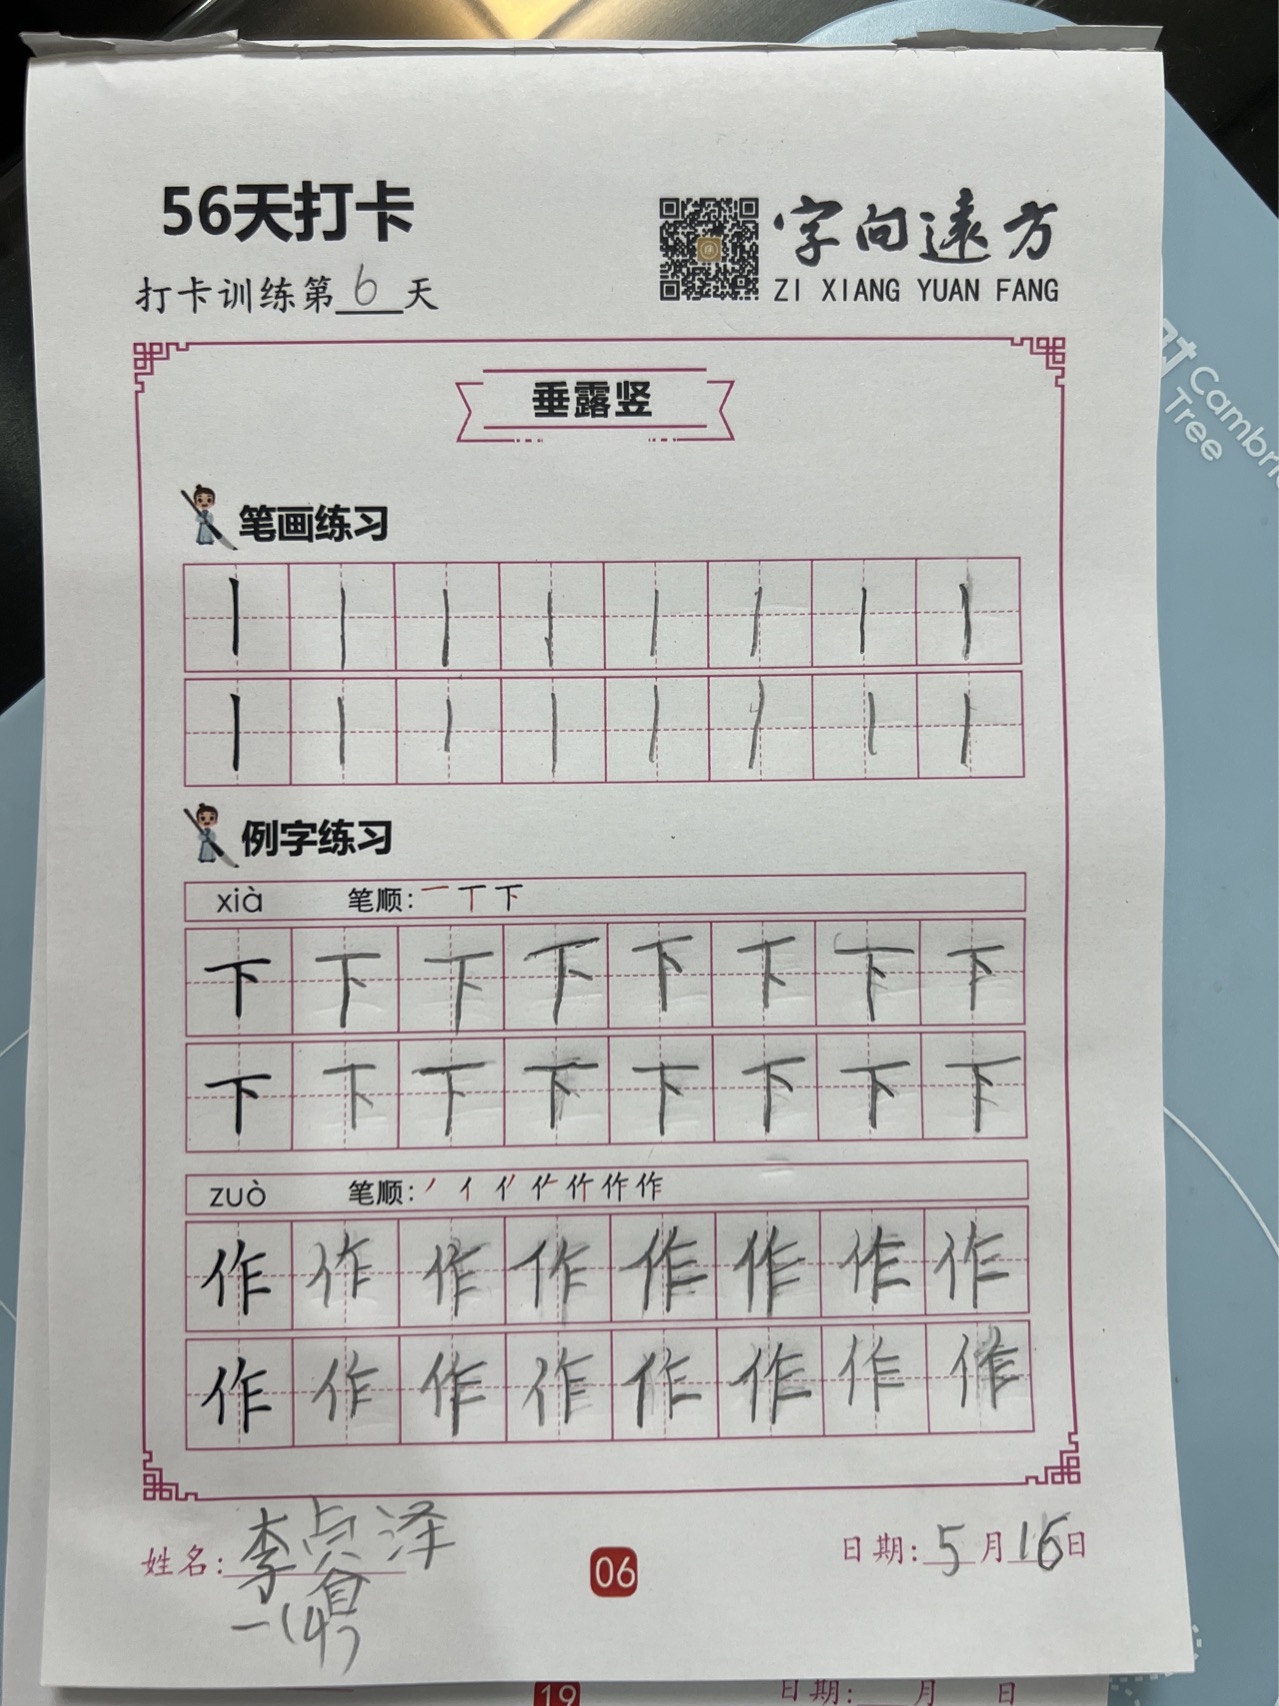 56天打卡
字向遠方
打卡训练第6天
ZI XIANG YUAN FANG
Cambri
Tree
垂露竖
笔画练习
丨 丨 丨 丨 丨 丨 丨 丨
丨 丨 丨 丨 丨 丨 丨 丨
例字练习
xià 笔顺: 一 丅 下
下 下 下 下 下 下 下 下
下 下 下 下 下 下 下 下
zuò 笔顺: 丿 亻 作
作 作 作 作 作 作 作 作
作 作 作 作 作 作 作 作
姓名: 李 泽
一(4)
06
日期: 5月16日
19
日期: 月 日